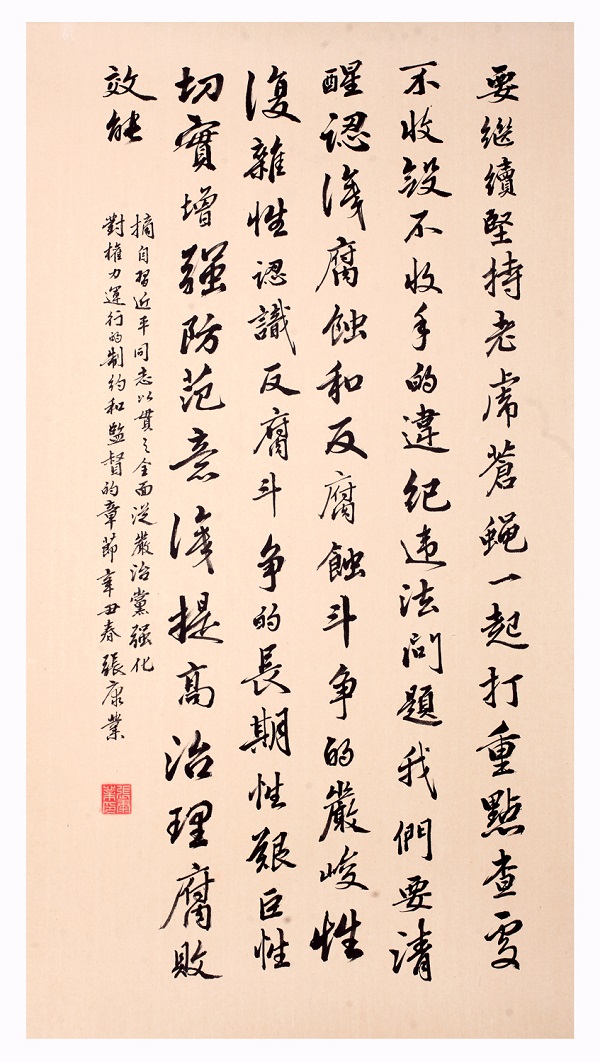 要继續堅持老虎蒼蝇一起打重點查處
不收敛不收手的違纪违法问題我們要清
醒認淺腐蚀和反腐蝕斗争的嚴峻性
復雜性認識反腐斗争的長期性艱巨性
切實增强防范意淺提高治理腐敗
效能
摘自習近平同志以貫之全面從嚴治黨强化
對權力運行的制约和監督的章節辛丑春張康業
張康業印